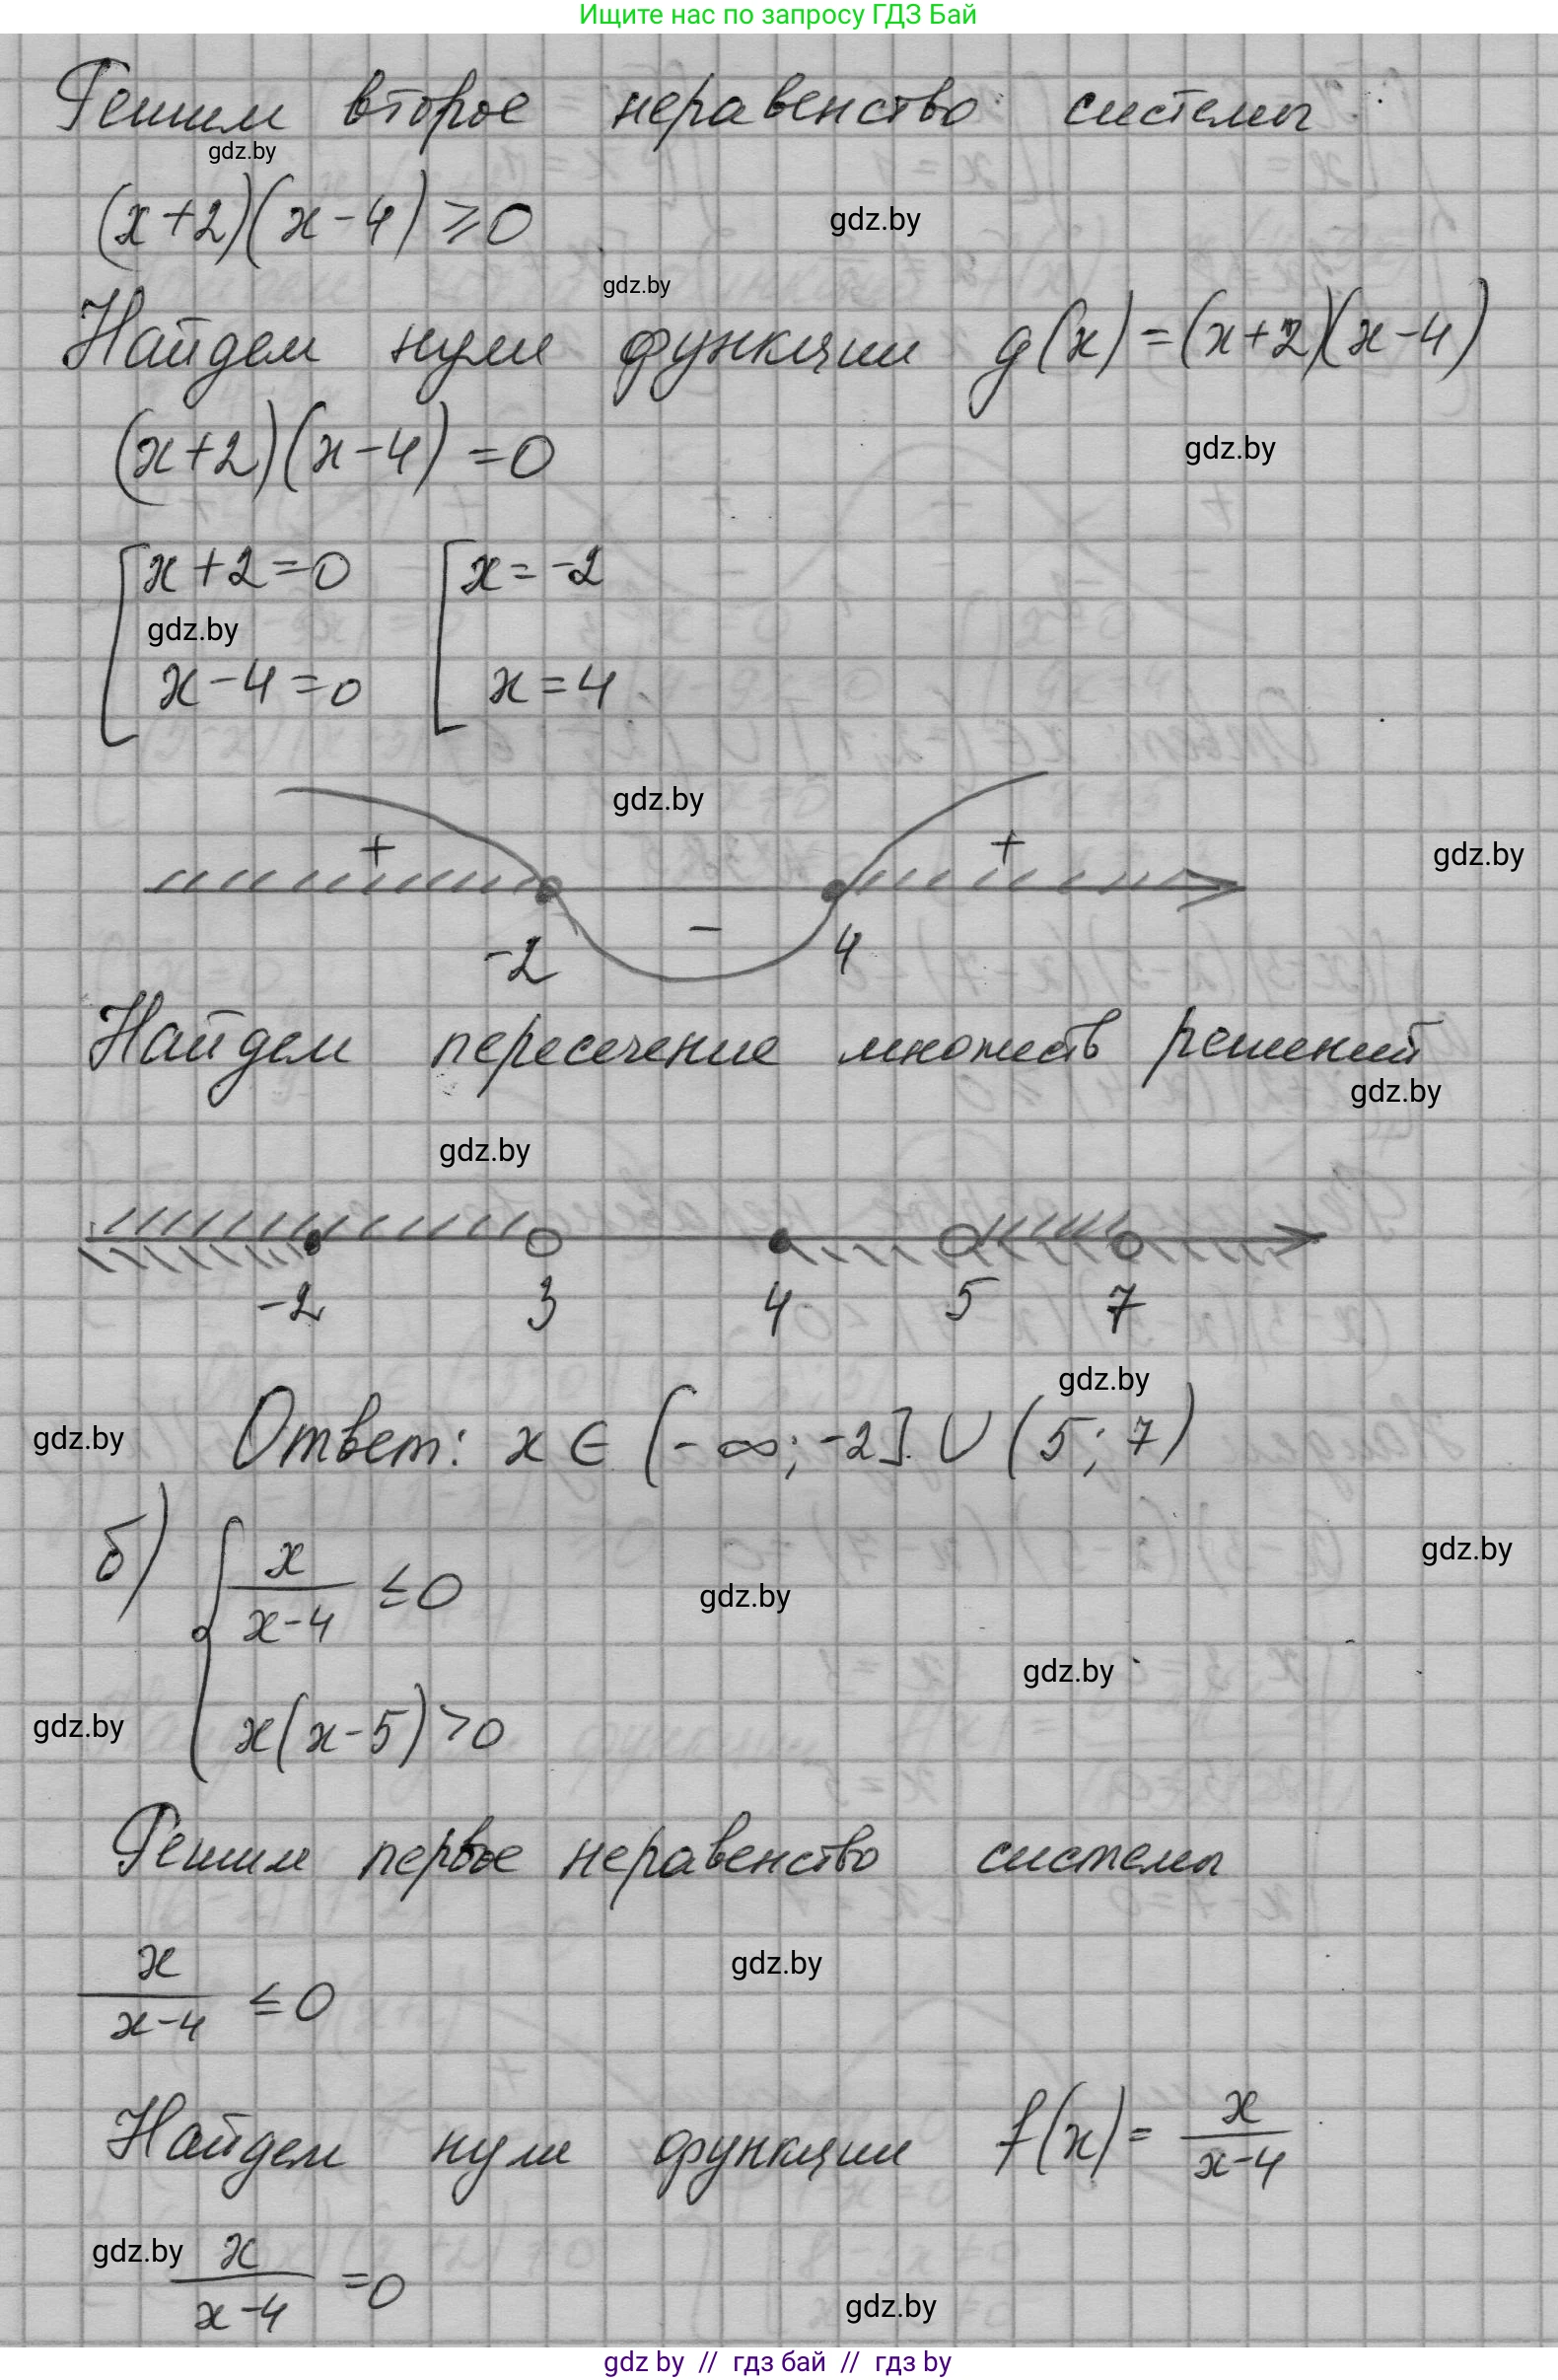 Ищите нас по запросу ГДЗ Бай
Решим второе неравенство системы:
gdz.by
(x+2)(x-4) ≥ 0
gdz.by
gdz.by
Найдем нули функции g(x) = (x+2)(x-4)
(x+2)(x-4) = 0
gdz.by
[ x+2=0 [ x=-2
gdz.by
x-4=0 x=4
gdz.by
+ +
gdz.by
-2 - 4
Найдем пересечение множеств решений
gdz.by
gdz.by
-2 3 4 5 7
gdz.by
gdz.by
Ответ: x ∈ (-∞; -2] ∪ (5; 7)
б) { x/(x-4) ≤ 0
gdz.by
gdz.by
gdz.by
gdz.by
x(x-5) > 0
Решим первое неравенство системы
x/(x-4) ≤ 0
gdz.by
Найдем нули функции f(x) = x/(x-4)
gdz.by
x/(x-4) = 0
gdz.by
gdz by // гдз бай // гдз by